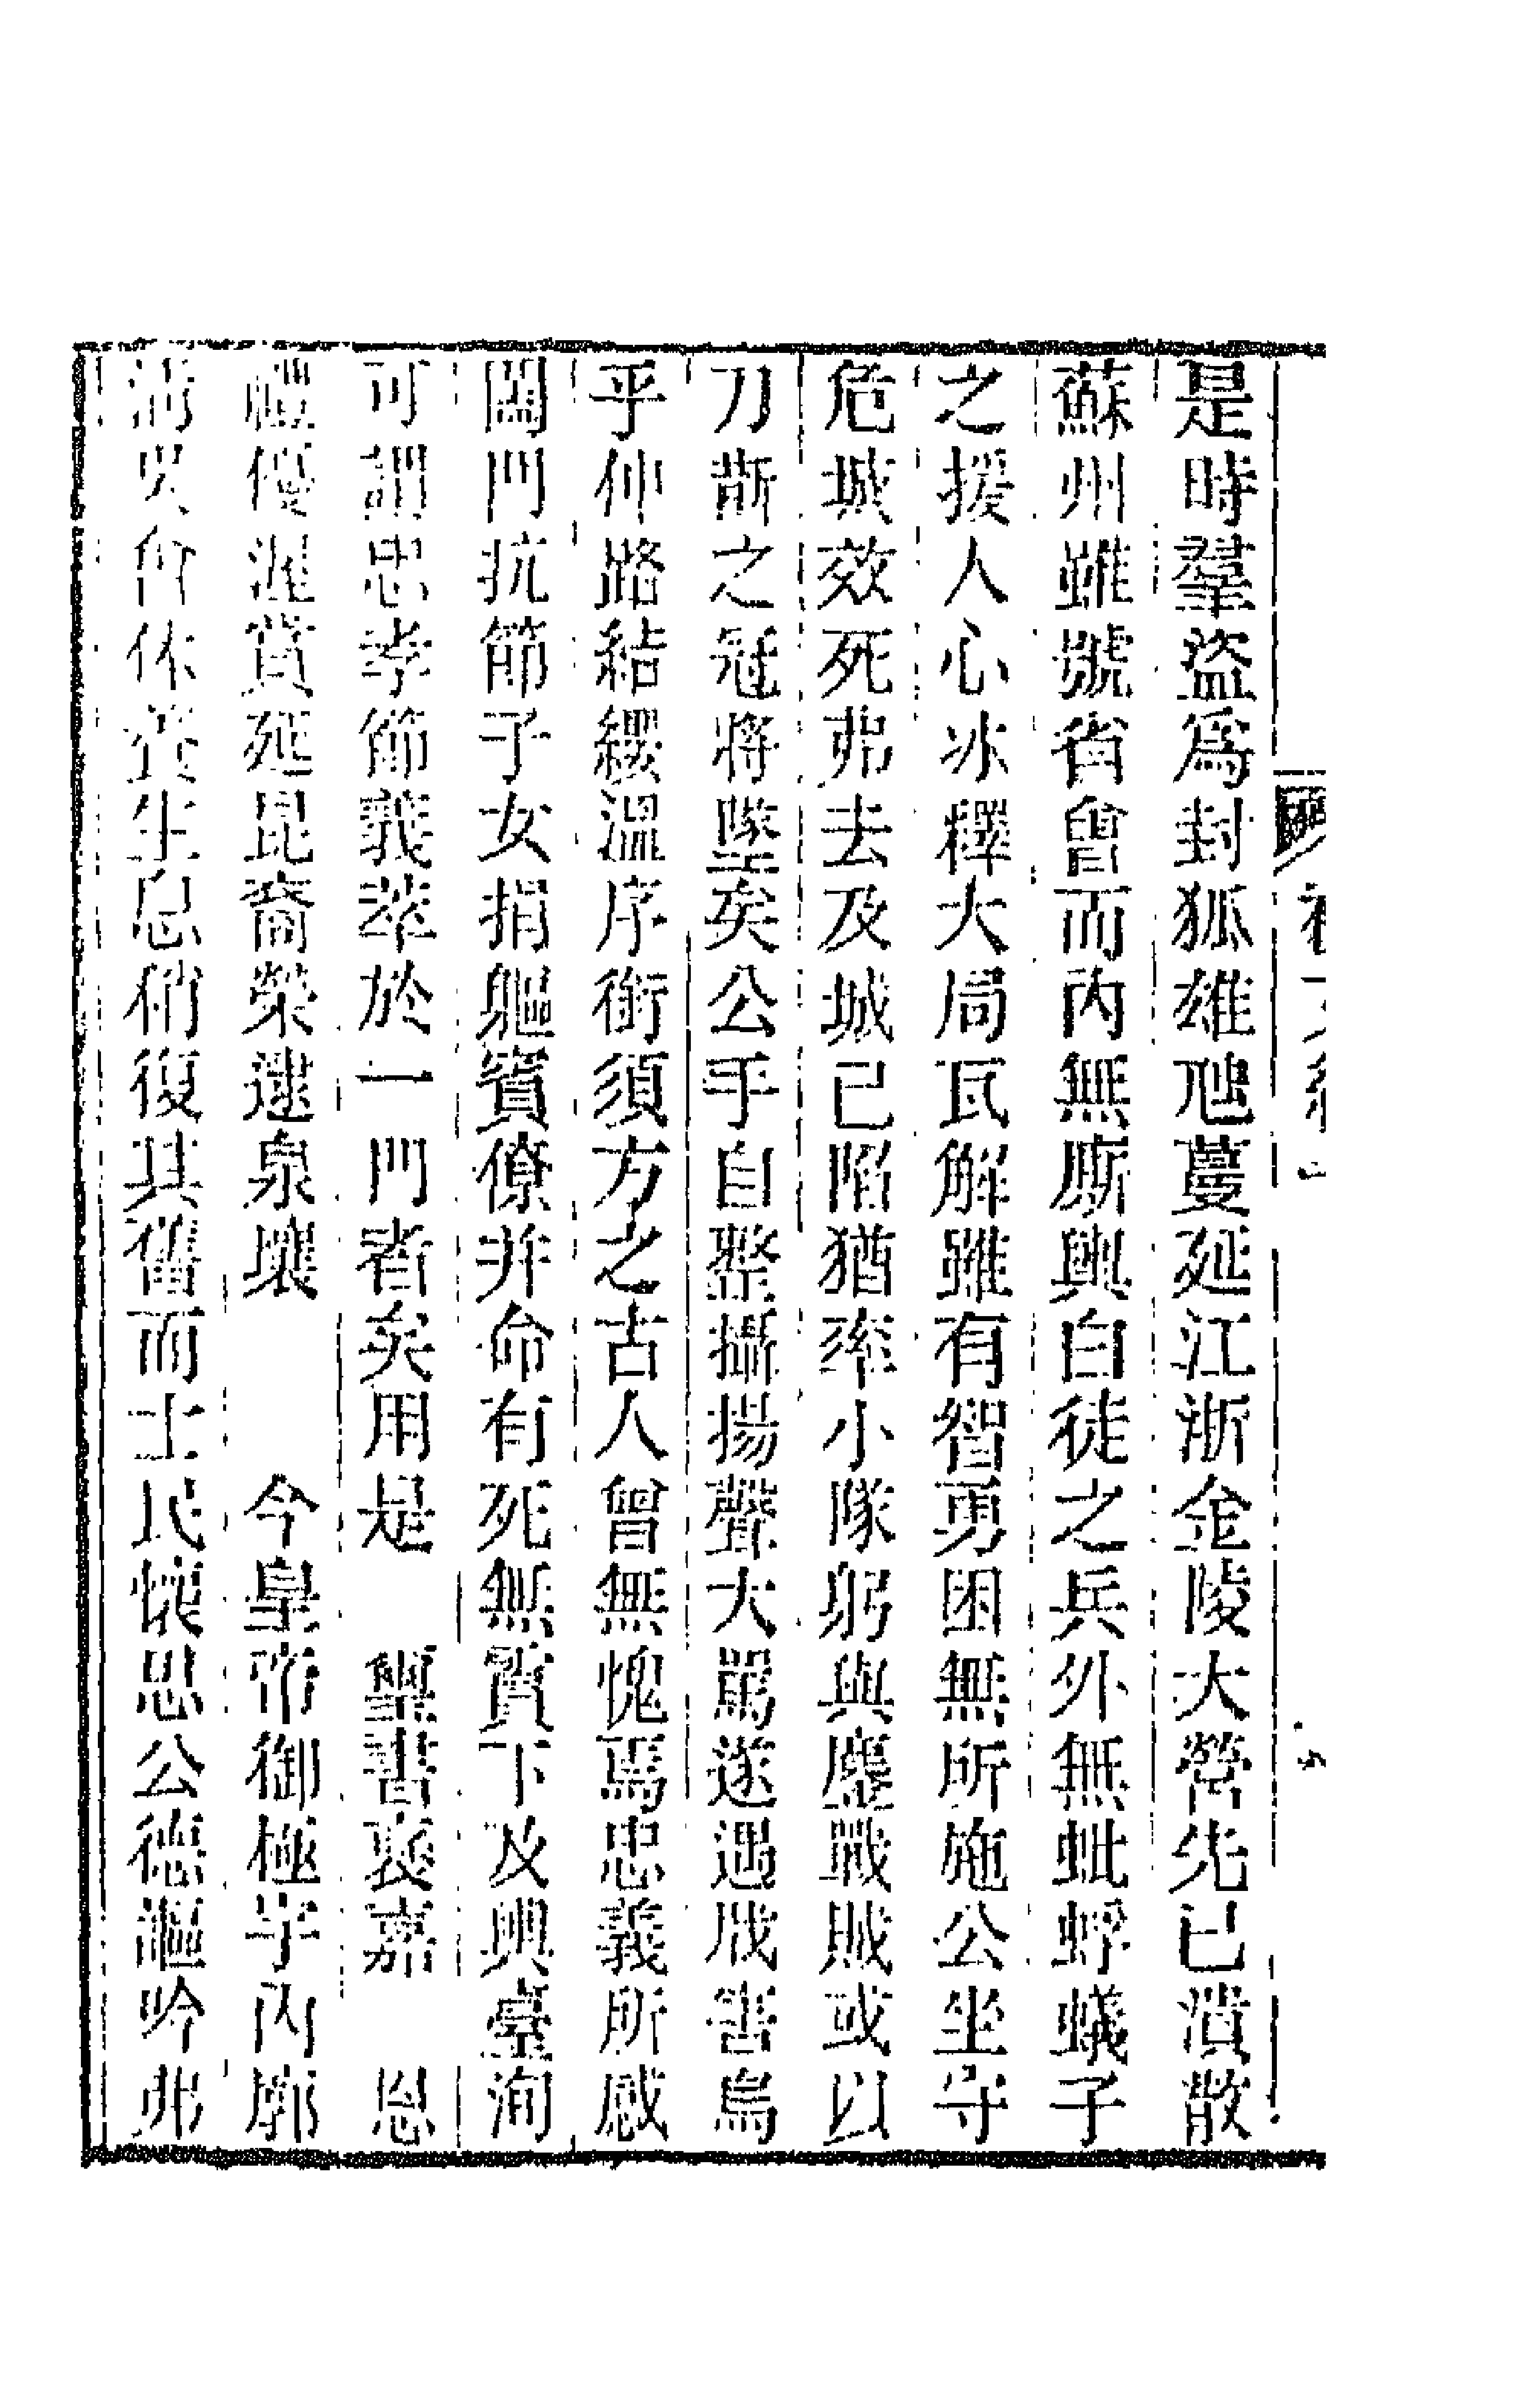 是時羣盜爲封狐雄虺蔓延江浙金陵大營先已潰散
蘇州雖號省會而內無廝輿白徒之兵外無蚍蜉蟻子
之援人心冰釋大局瓦解雖有智勇困無所施公坐守
危城效死弗去及城已陷猶率小隊躬與鏖戰賊或以
刀斮之冠將墜矣公手自整攝揚聲大罵遂遇戕害烏
乎仲路結纓溫序銜須方之古人曾無愧焉忠義所感
闔門抗節子女捐軀賓僚并命有死無貳下及輿臺洵
可謂忠孝節義萃於一門者矣用是 璽書褒嘉 恩
禮優渥賞延昆裔榮逮泉壤 今皇帝御極宇內廓
清吳會休養生息稍復其舊而士民懷思公德謳吟弗